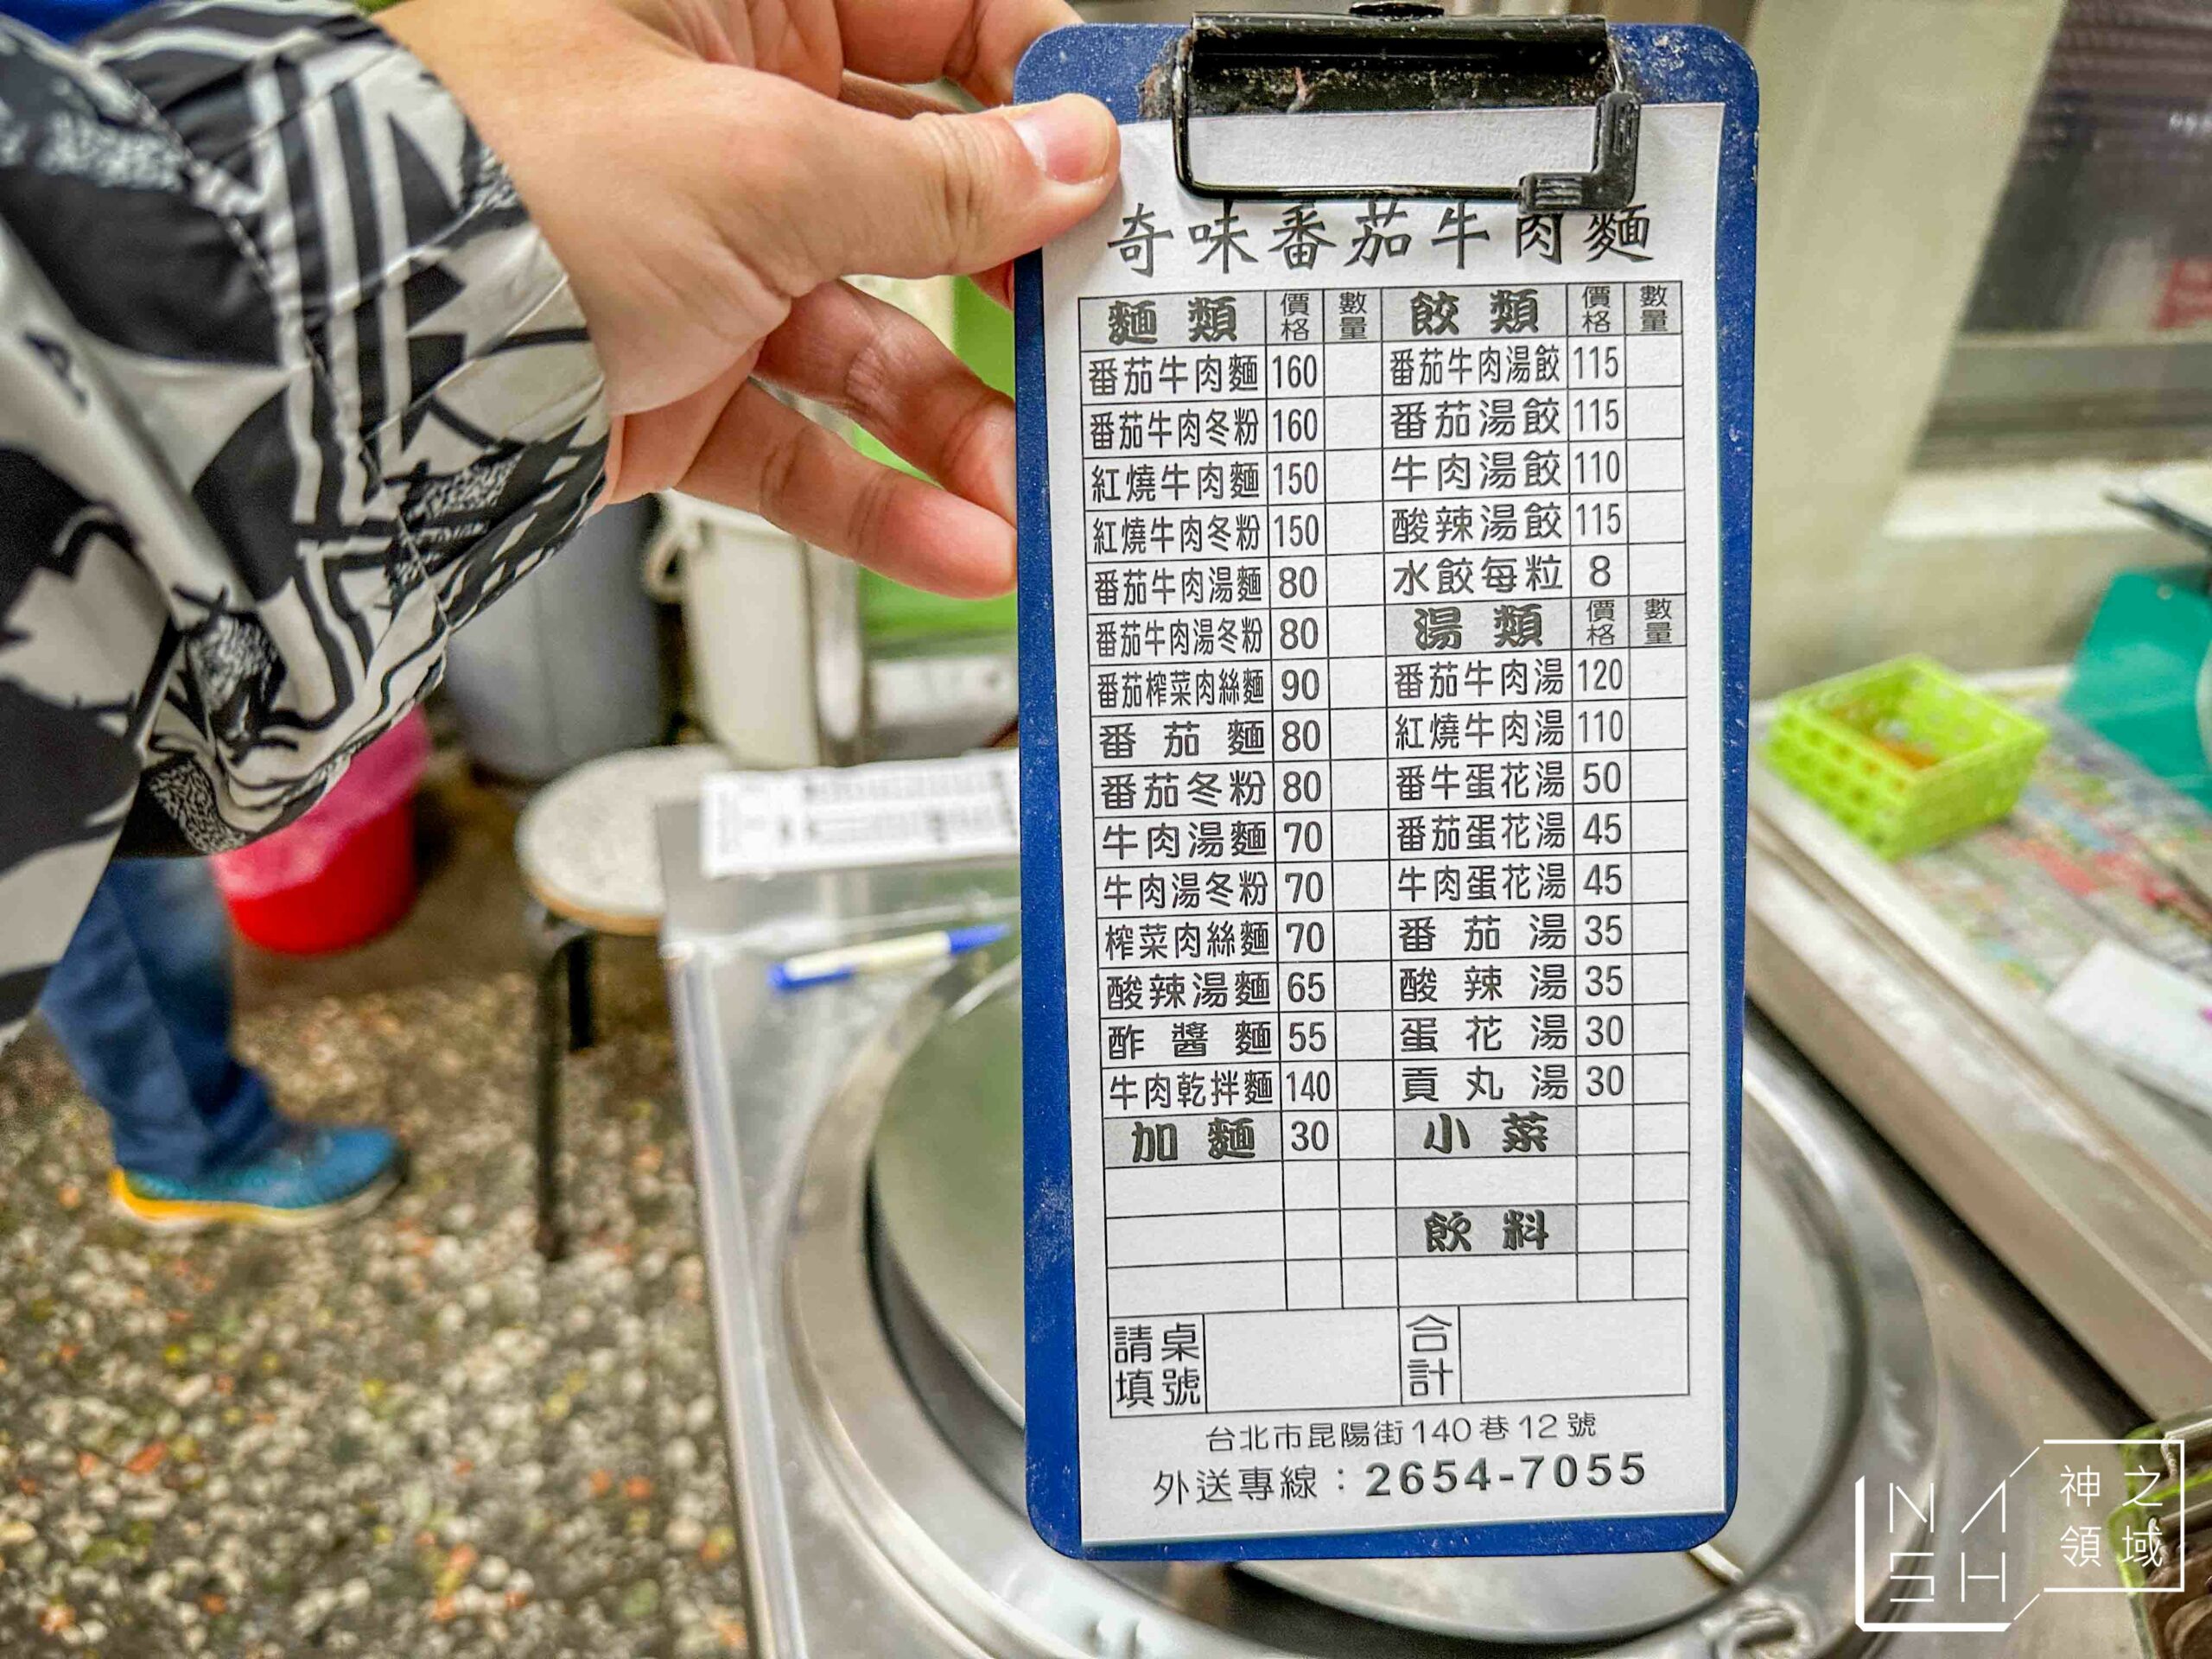 奇味番茄牛肉麵
麵類 價格 數量 餃類 價格 數量
番茄牛肉麵 160 番茄牛肉湯餃 115
番茄牛肉冬粉 160 番茄湯餃 115
紅燒牛肉麵 150 牛肉湯餃 110
紅燒牛肉冬粉 150 酸辣湯餃 115
番茄牛肉湯麵 80 水餃每粒 8
番茄牛肉湯冬粉 80 湯類 價格 數量
番茄榨菜肉絲麵 90 番茄牛肉湯 120
番茄麵 80 紅燒牛肉湯 110
番茄冬粉 80 番牛蛋花湯 50
牛肉湯麵 70 番茄蛋花湯 45
牛肉湯冬粉 70 牛肉蛋花湯 45
榨菜肉絲麵 70 番茄湯 35
酸辣湯麵 65 酸辣湯 35
酢醬麵 55 蛋花湯 30
牛肉乾拌麵 140 貢丸湯 30
加麵 30 小菜
飲料
請填桌號 合計
台北市昆陽街140巷12號
外送專線：2654-7055
NASH 神之領域